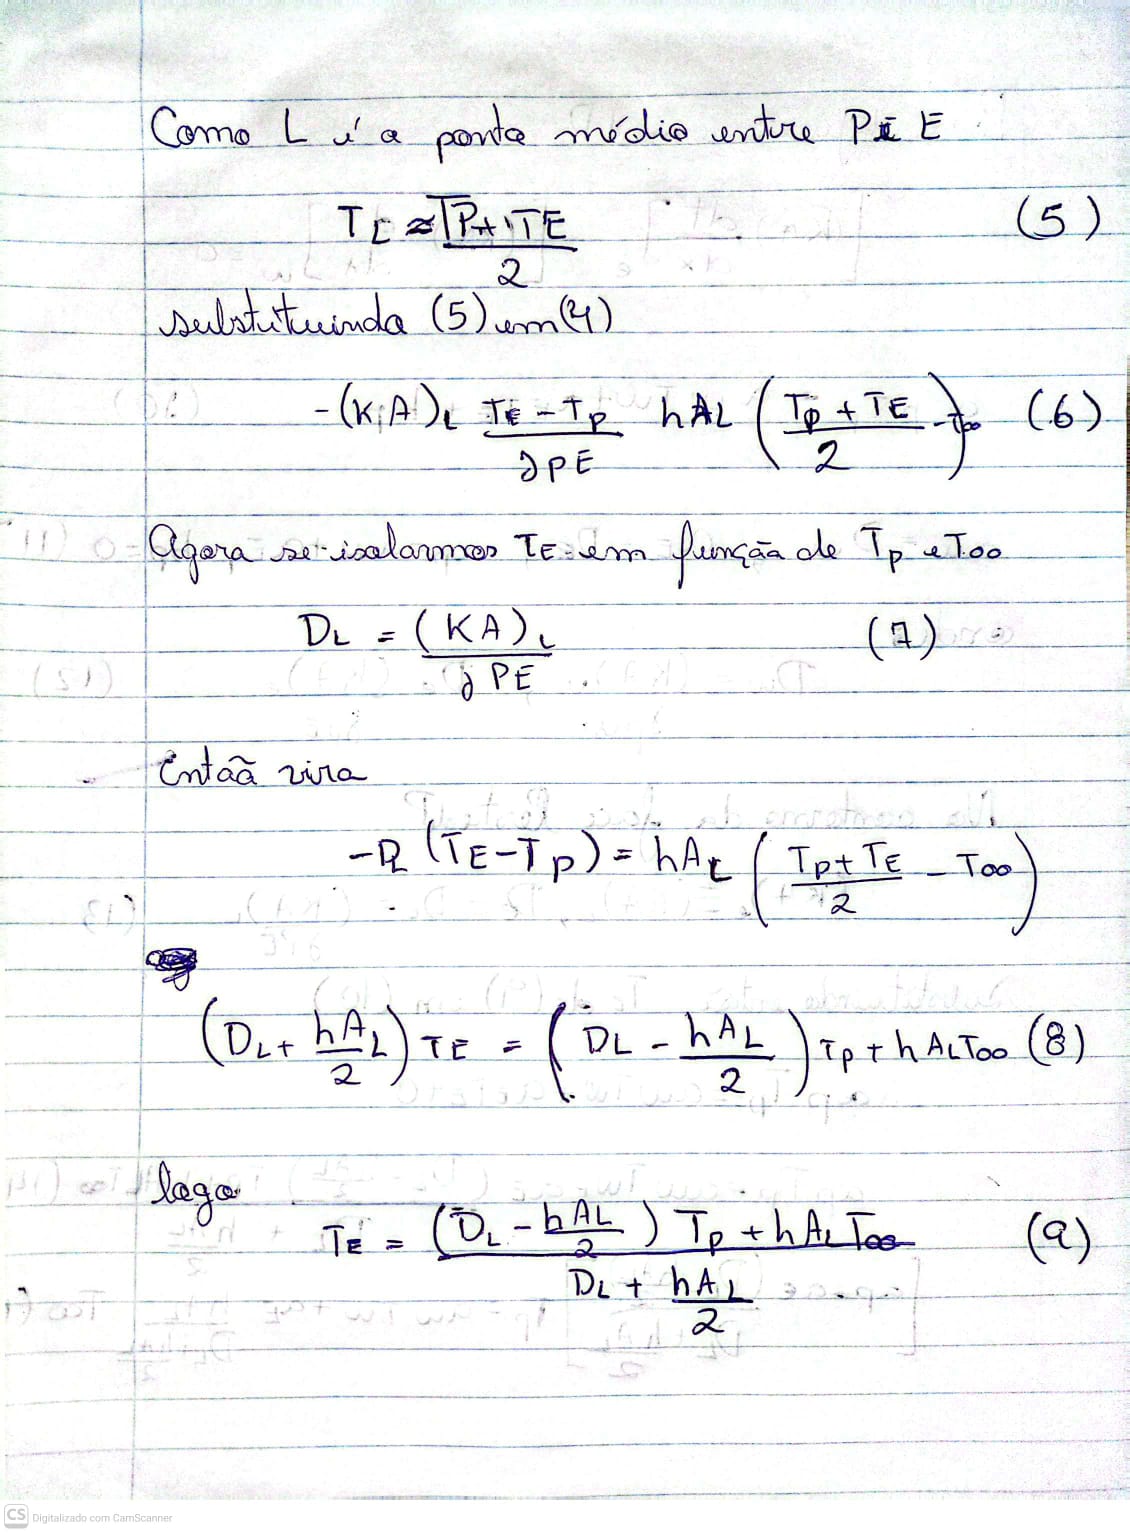 Como L é o ponto médio entre P e E
TL ≈ TP + TE / 2 (5)
substituindo (5) em (4)
-(K A)L TE - TP / ∂PE hAL (TP + TE / 2 - T∞) (6)
Agora se isolarmos TE em função de Tp e T∞
DL = (KA)L / ∂PE (7)
Então vira
-DL (TE - Tp) = hAL (Tp + TE / 2 - T∞)
(DL + hAL / 2) TE = (DL - hAL / 2) Tp + hAL T∞ (8)
logo
TE = (DL - hAL / 2) Tp + hAL T∞ / DL + hAL / 2 (9)
CS Digitalizado com CamScanner